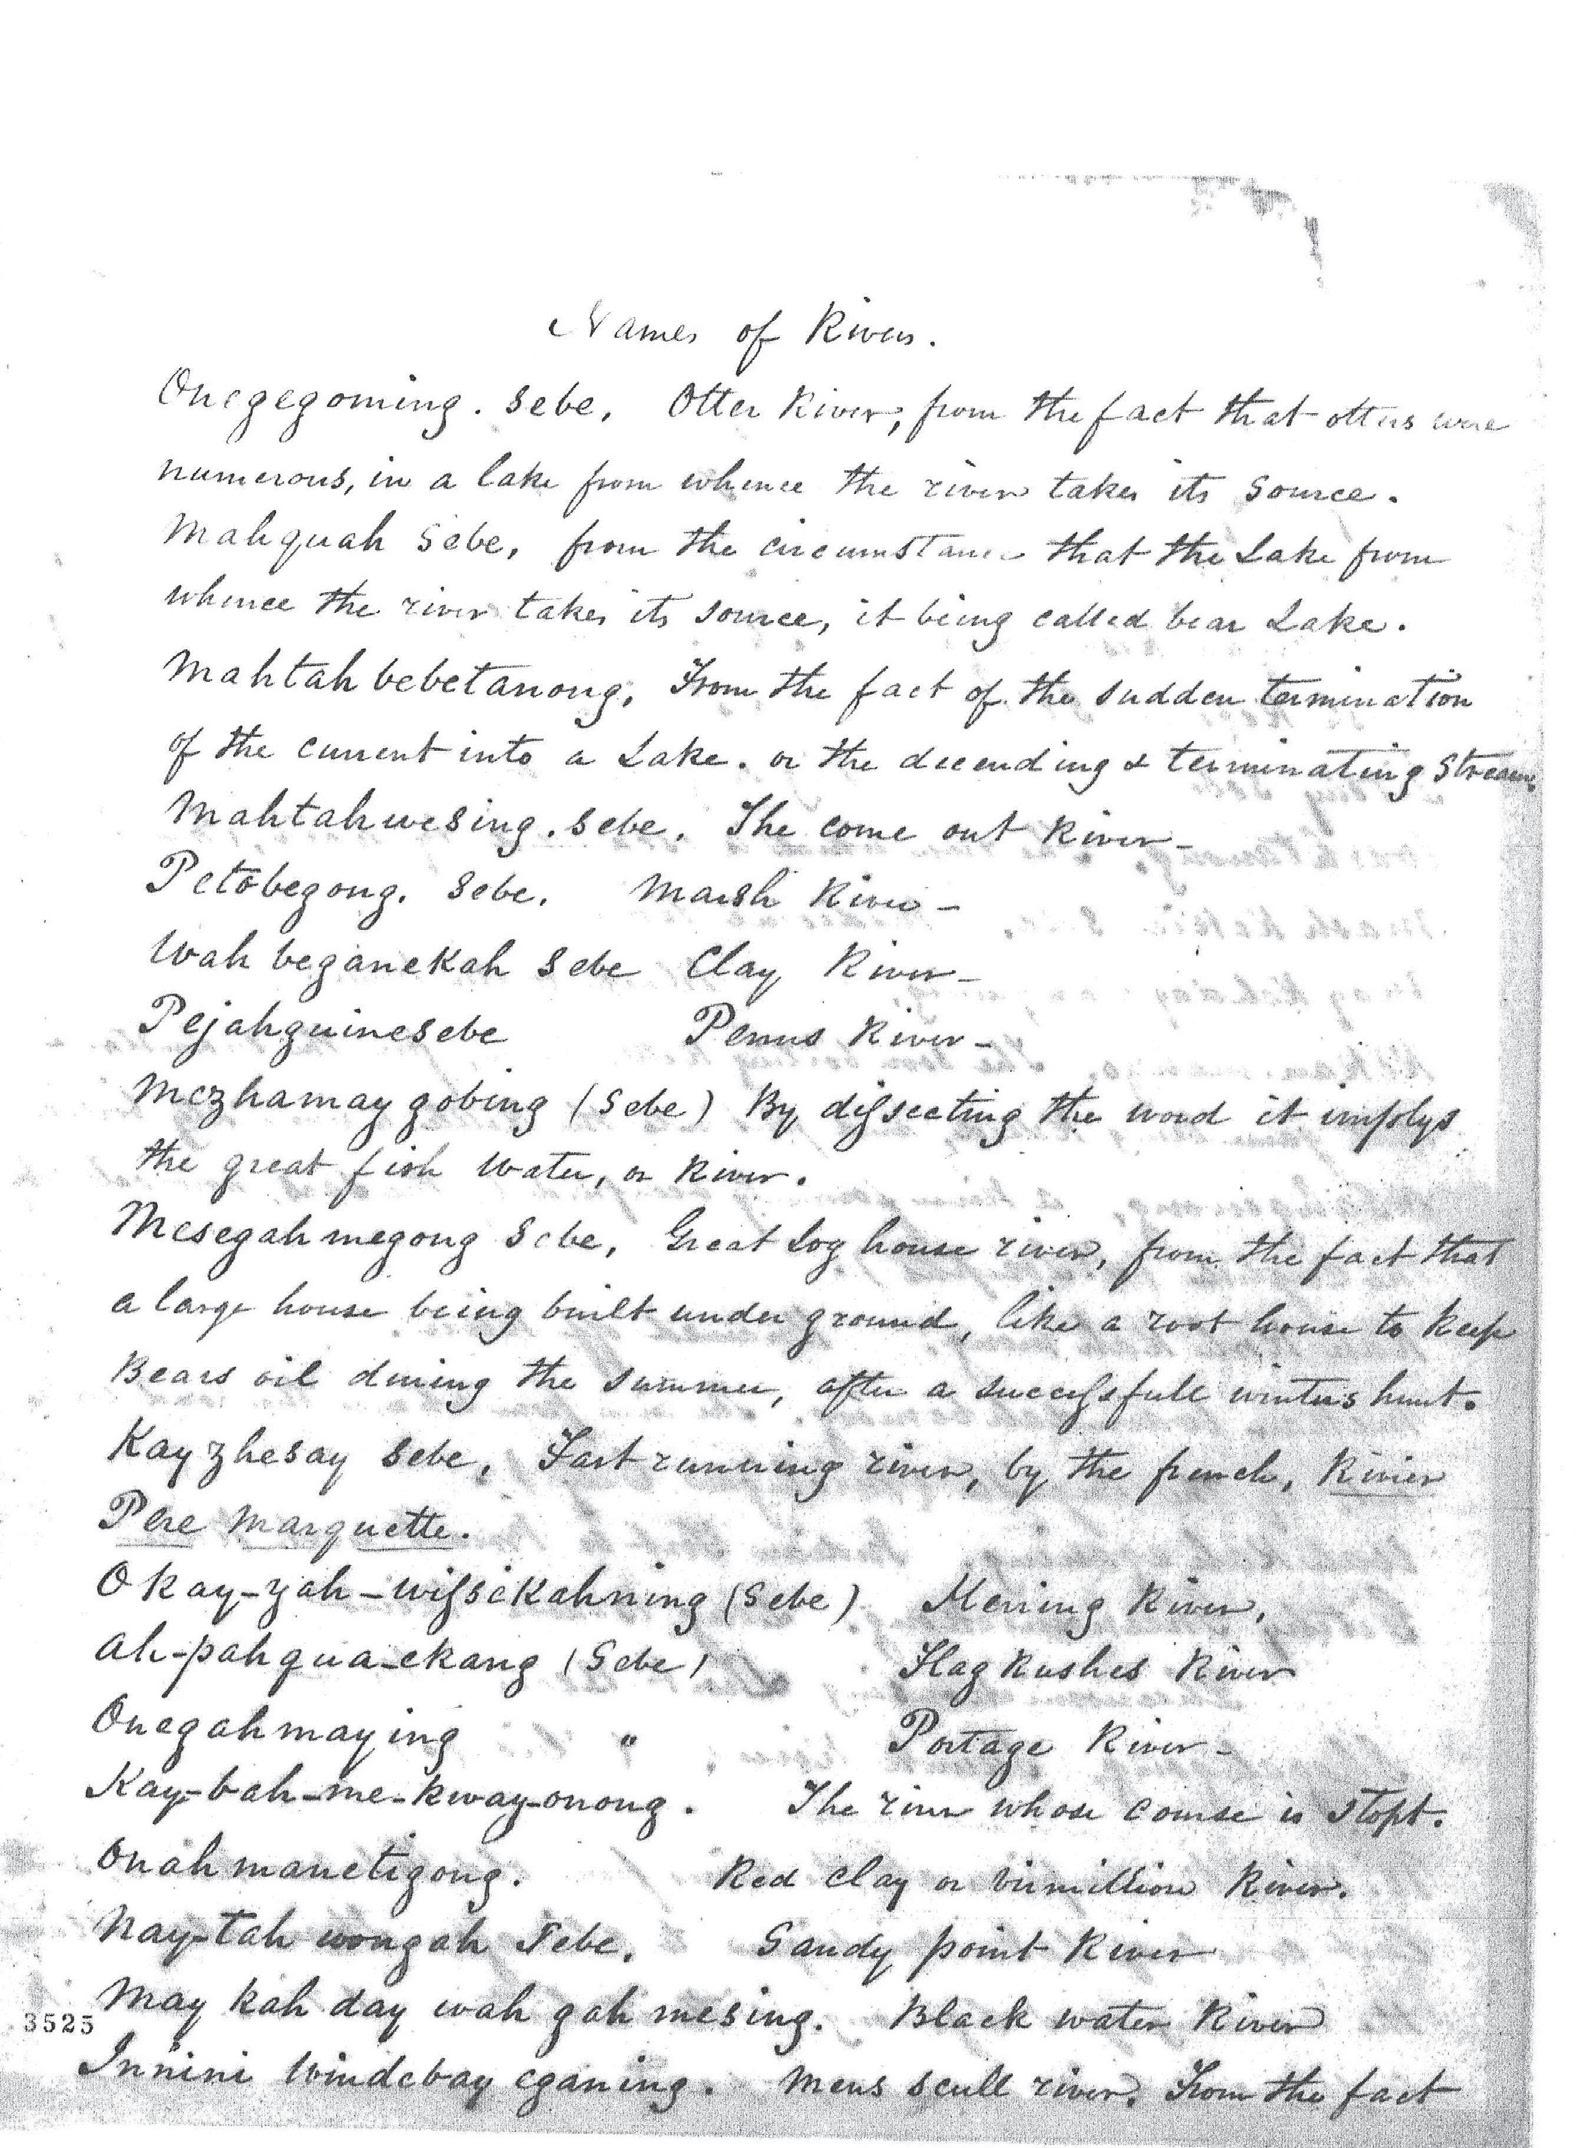 Names of Rivers.
Onegegoming. Sebe, Otter River, from the fact that otters were
numerous, in a lake from whence the river takes its source.
Mahquah Sebe, from the circumstance that the Lake from
whence the river takes its source, it being called bear Lake.
Mahtahbebetanong, From the fact of the sudden termination
of the current into a Lake. or the decending & terminating Stream.
Mahtahwesing. Sebe. The come out River-
Petobegong. Sebe. Marsh River-
Wahbeganekah Sebe Clay River-
Pejahguinesebe Penus River-
Mezhamaygobing (Sebe) By dissecting the word it implys
the great fish water, or River.
Mesegahmegong Sebe, Great log house river, from the fact that
a large house being built under ground, like a root house to keep
Bears oil during the summer, after a successfull winters hunt.
Kayzhesay Sebe, Fast running river, by the french, Rivier
Pere Marquette.
Okay-yah-wissekahning (Sebe) Herring River,
Ah-pahqua-ekang (Sebe) Flag Rushes River
Onegahmaying " Portage River-
Kay-bah-me-kway-onong. The river whose course is stopt.
Onahmanetigong. Red clay or virmillion River.
Nay-tah wongah Sebe. Sandy point River
May kah day wah gah mesing. Black water River
3525
Innini Windebay eganing. Mens scull river. From the fact